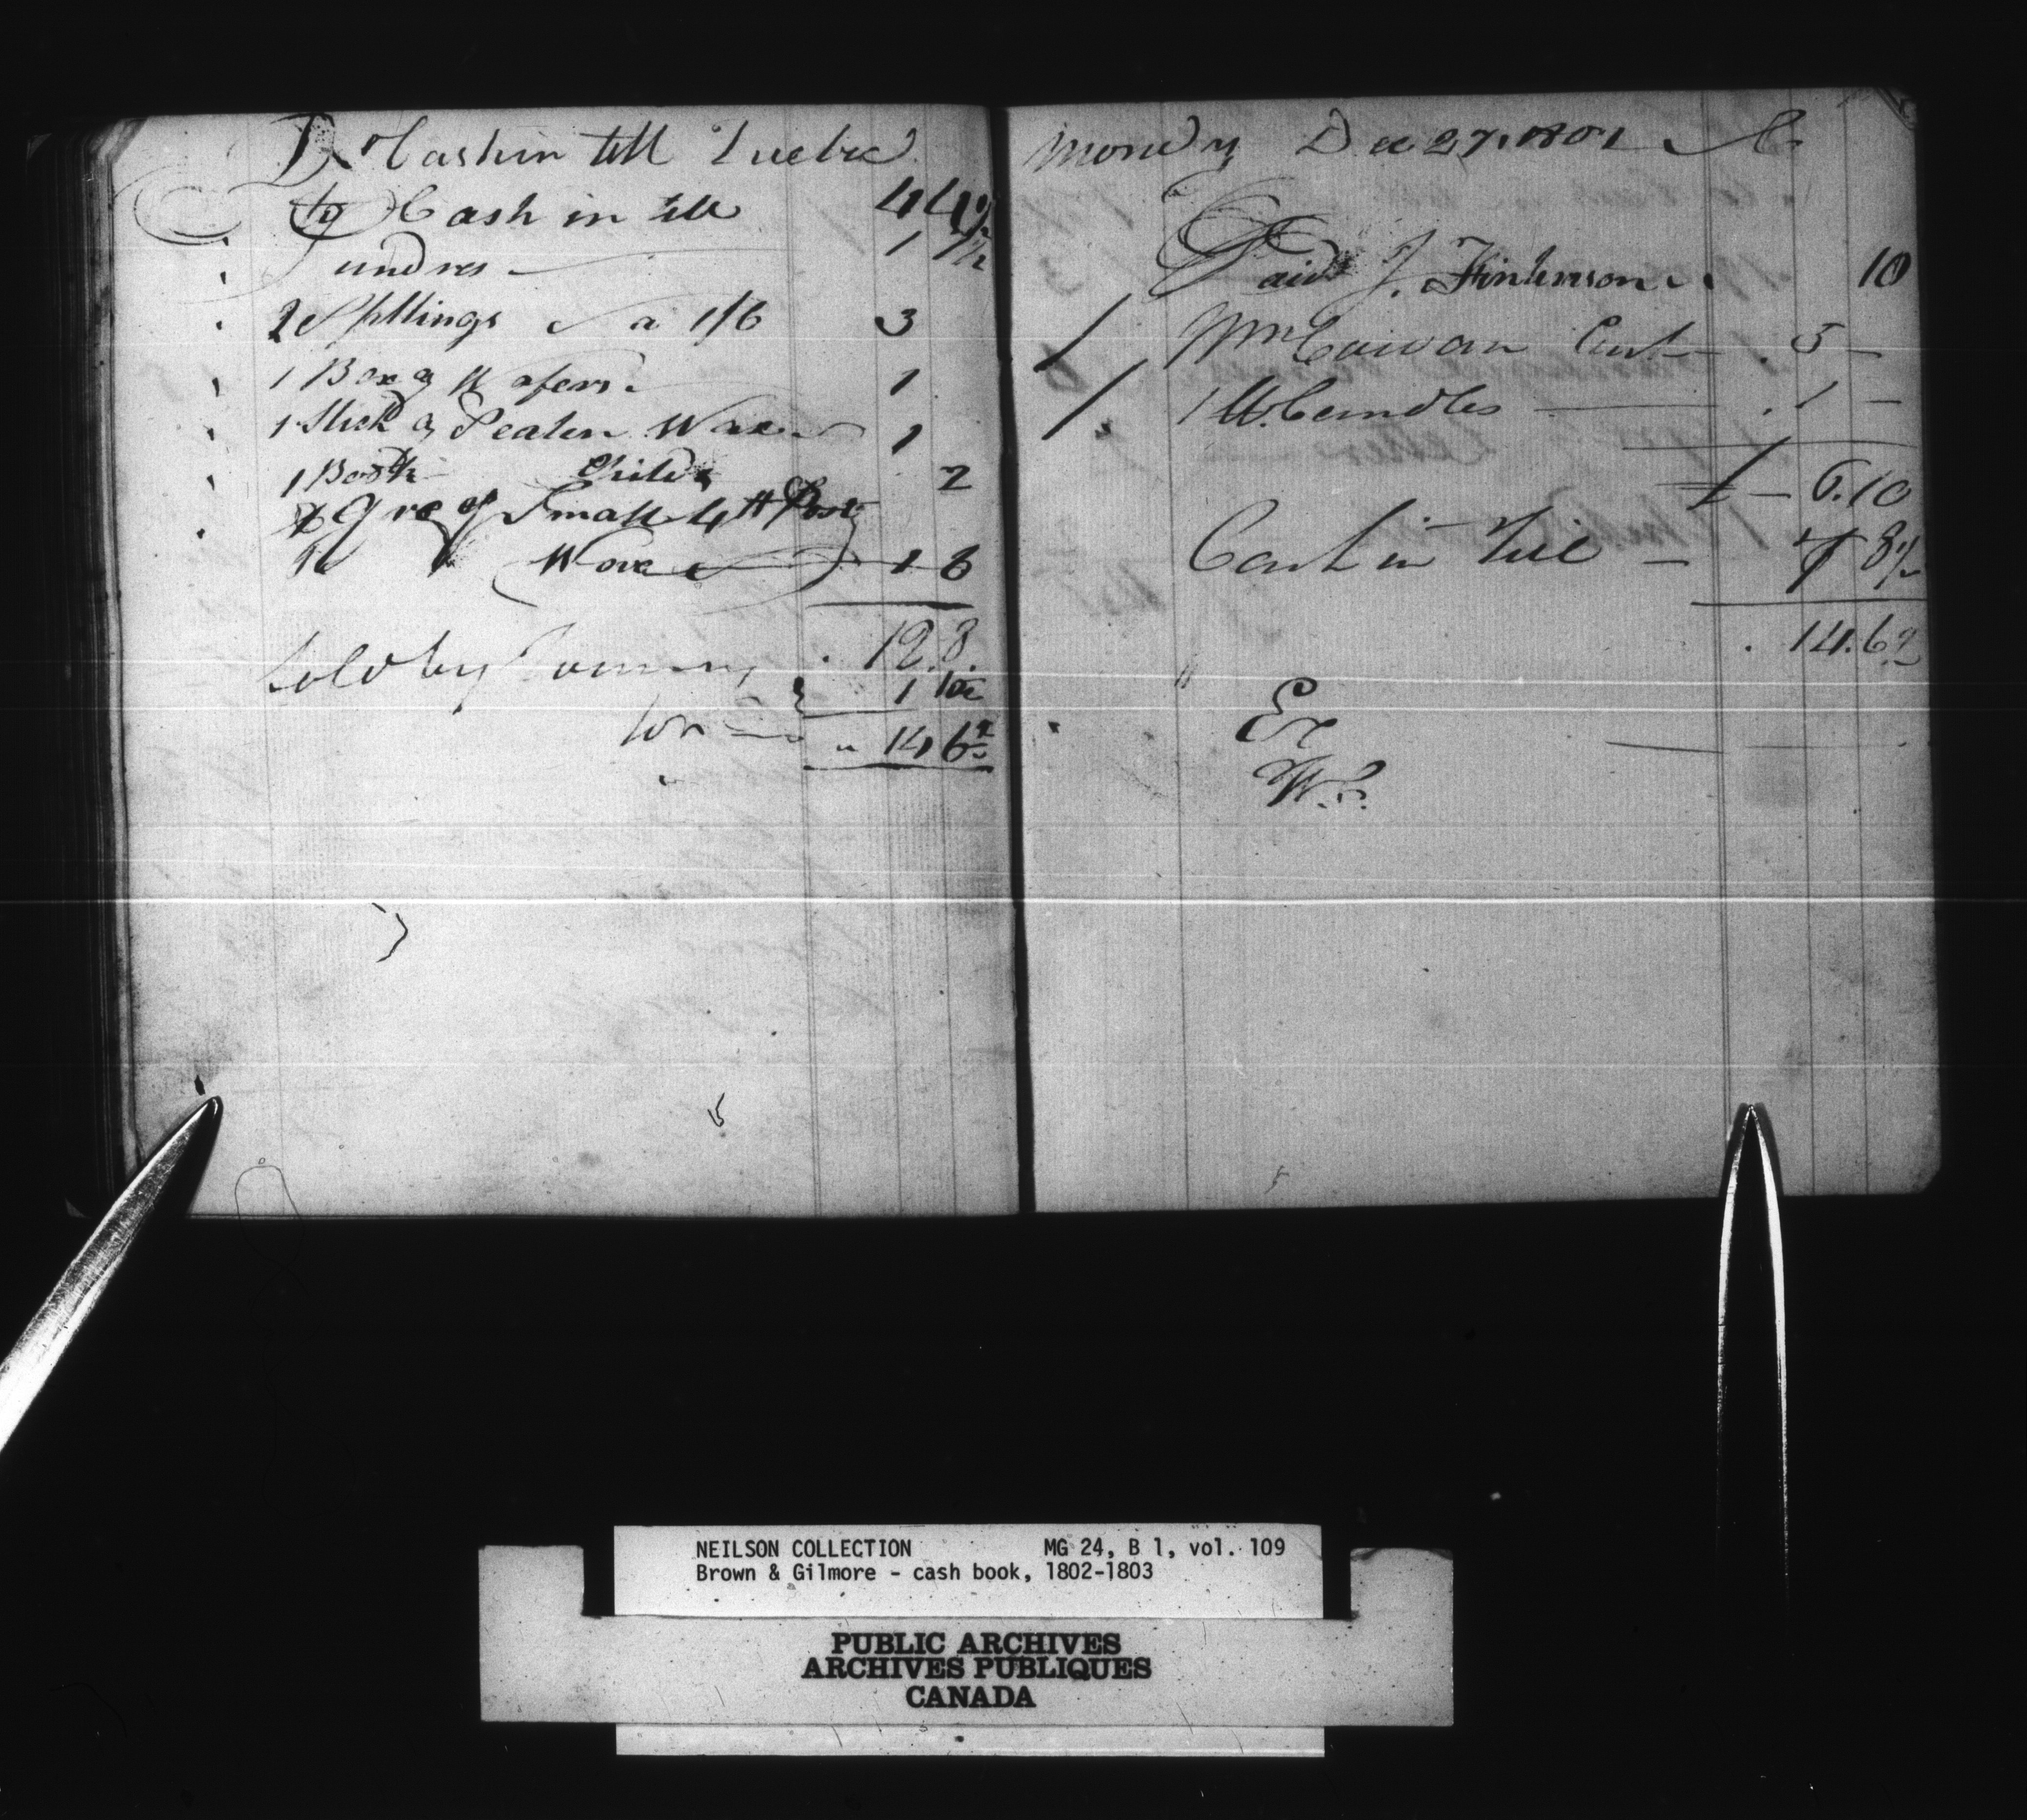 Dr Cash in till Quebec
to Cash in till 4 4½
Sundres 1 ½
2 Spillings a 1/6 3
1 Box of Wafers 1
1 Stick of Sealen Wax 1
1 Book Child 2
qre of Small 4to Post
Wove 1 6
12.8.
Sold by
for 1 10½
" 14 6½
Monday Dec 27. 1801 Cr
Paid J. Finlenson 10
Wm Cowan Cash . 5 –
1 lb Candles . 1 –
6.10
Cash in Till – 7 8½
. 14.6½
Ex
W.C.
NEILSON COLLECTION MG 24, B 1, vol. 109
Brown & Gilmore - cash book, 1802-1803
PUBLIC ARCHIVES
ARCHIVES PUBLIQUES
CANADA